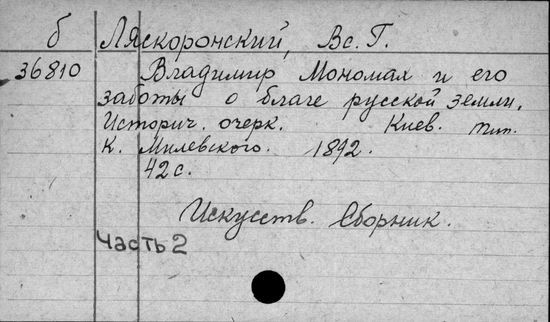 б Ляскоронский, Вс. Г.
36810 Владимир Мономах и его
заботы о благе русской земли.
Историч. очерк. Киев. тип.
К. Милевского. 1892.
42 с.
Искусств. Сборник.
Часть 2